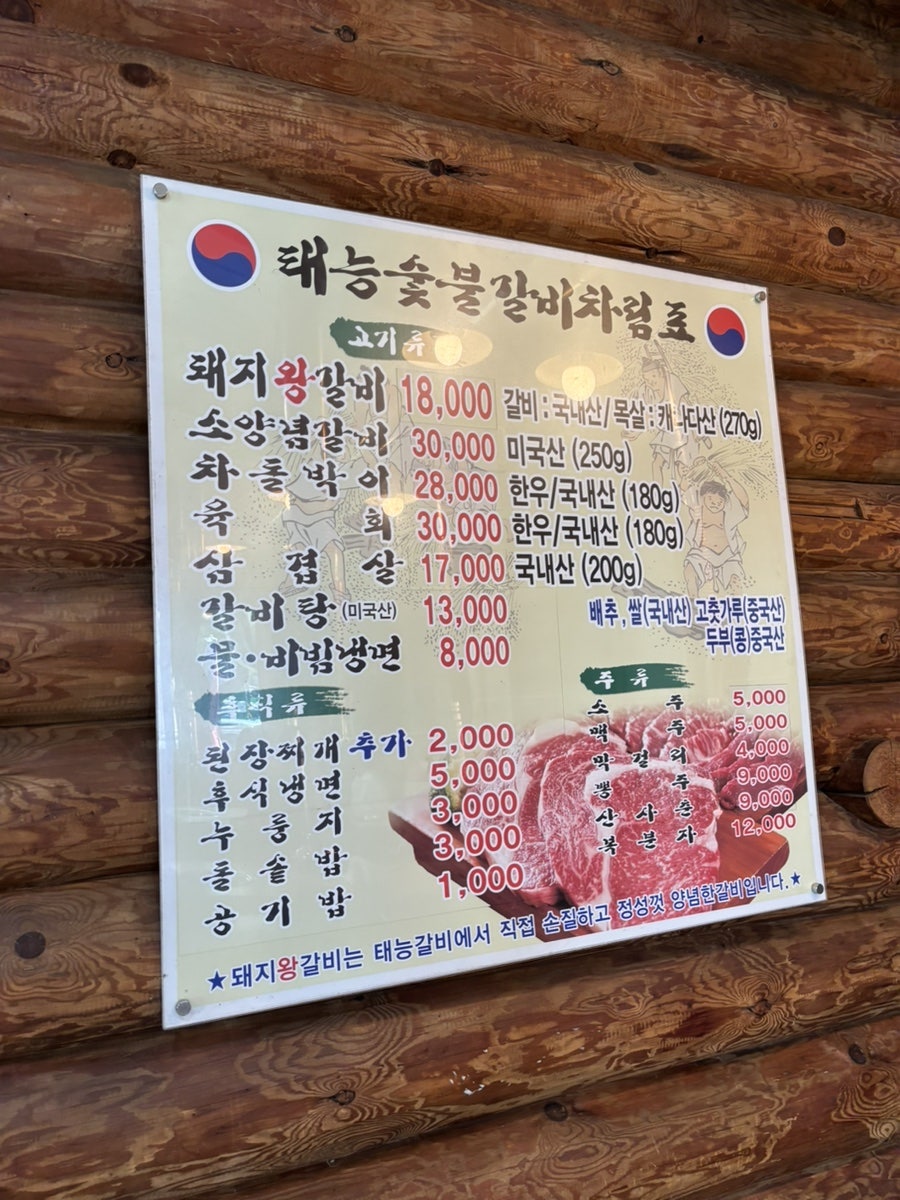 태능숯불갈비차림표
고기류
돼지왕갈비 18,000 갈비 : 국내산 / 목살 : 캐나다산 (270g)
소양념갈비 30,000 미국산 (250g)
차돌박이 28,000 한우/국내산 (180g)
육회 30,000 한우/국내산 (180g)
삼겹살 17,000 국내산 (200g)
갈비탕 (미국산) 13,000
물·비빔냉면 8,000
배추, 쌀(국내산) 고춧가루(중국산)
두부(콩)중국산
후식류
된장찌개추가 2,000
후식냉면 5,000
누룽지 3,000
돌솥밥 3,000
공기밥 1,000
주류
소주 5,000
맥주 5,000
막걸리 4,000
뽕주 9,000
산사춘 9,000
복분자 12,000
★돼지왕갈비는 태능갈비에서 직접 손질하고 정성껏 양념한갈비입니다.★